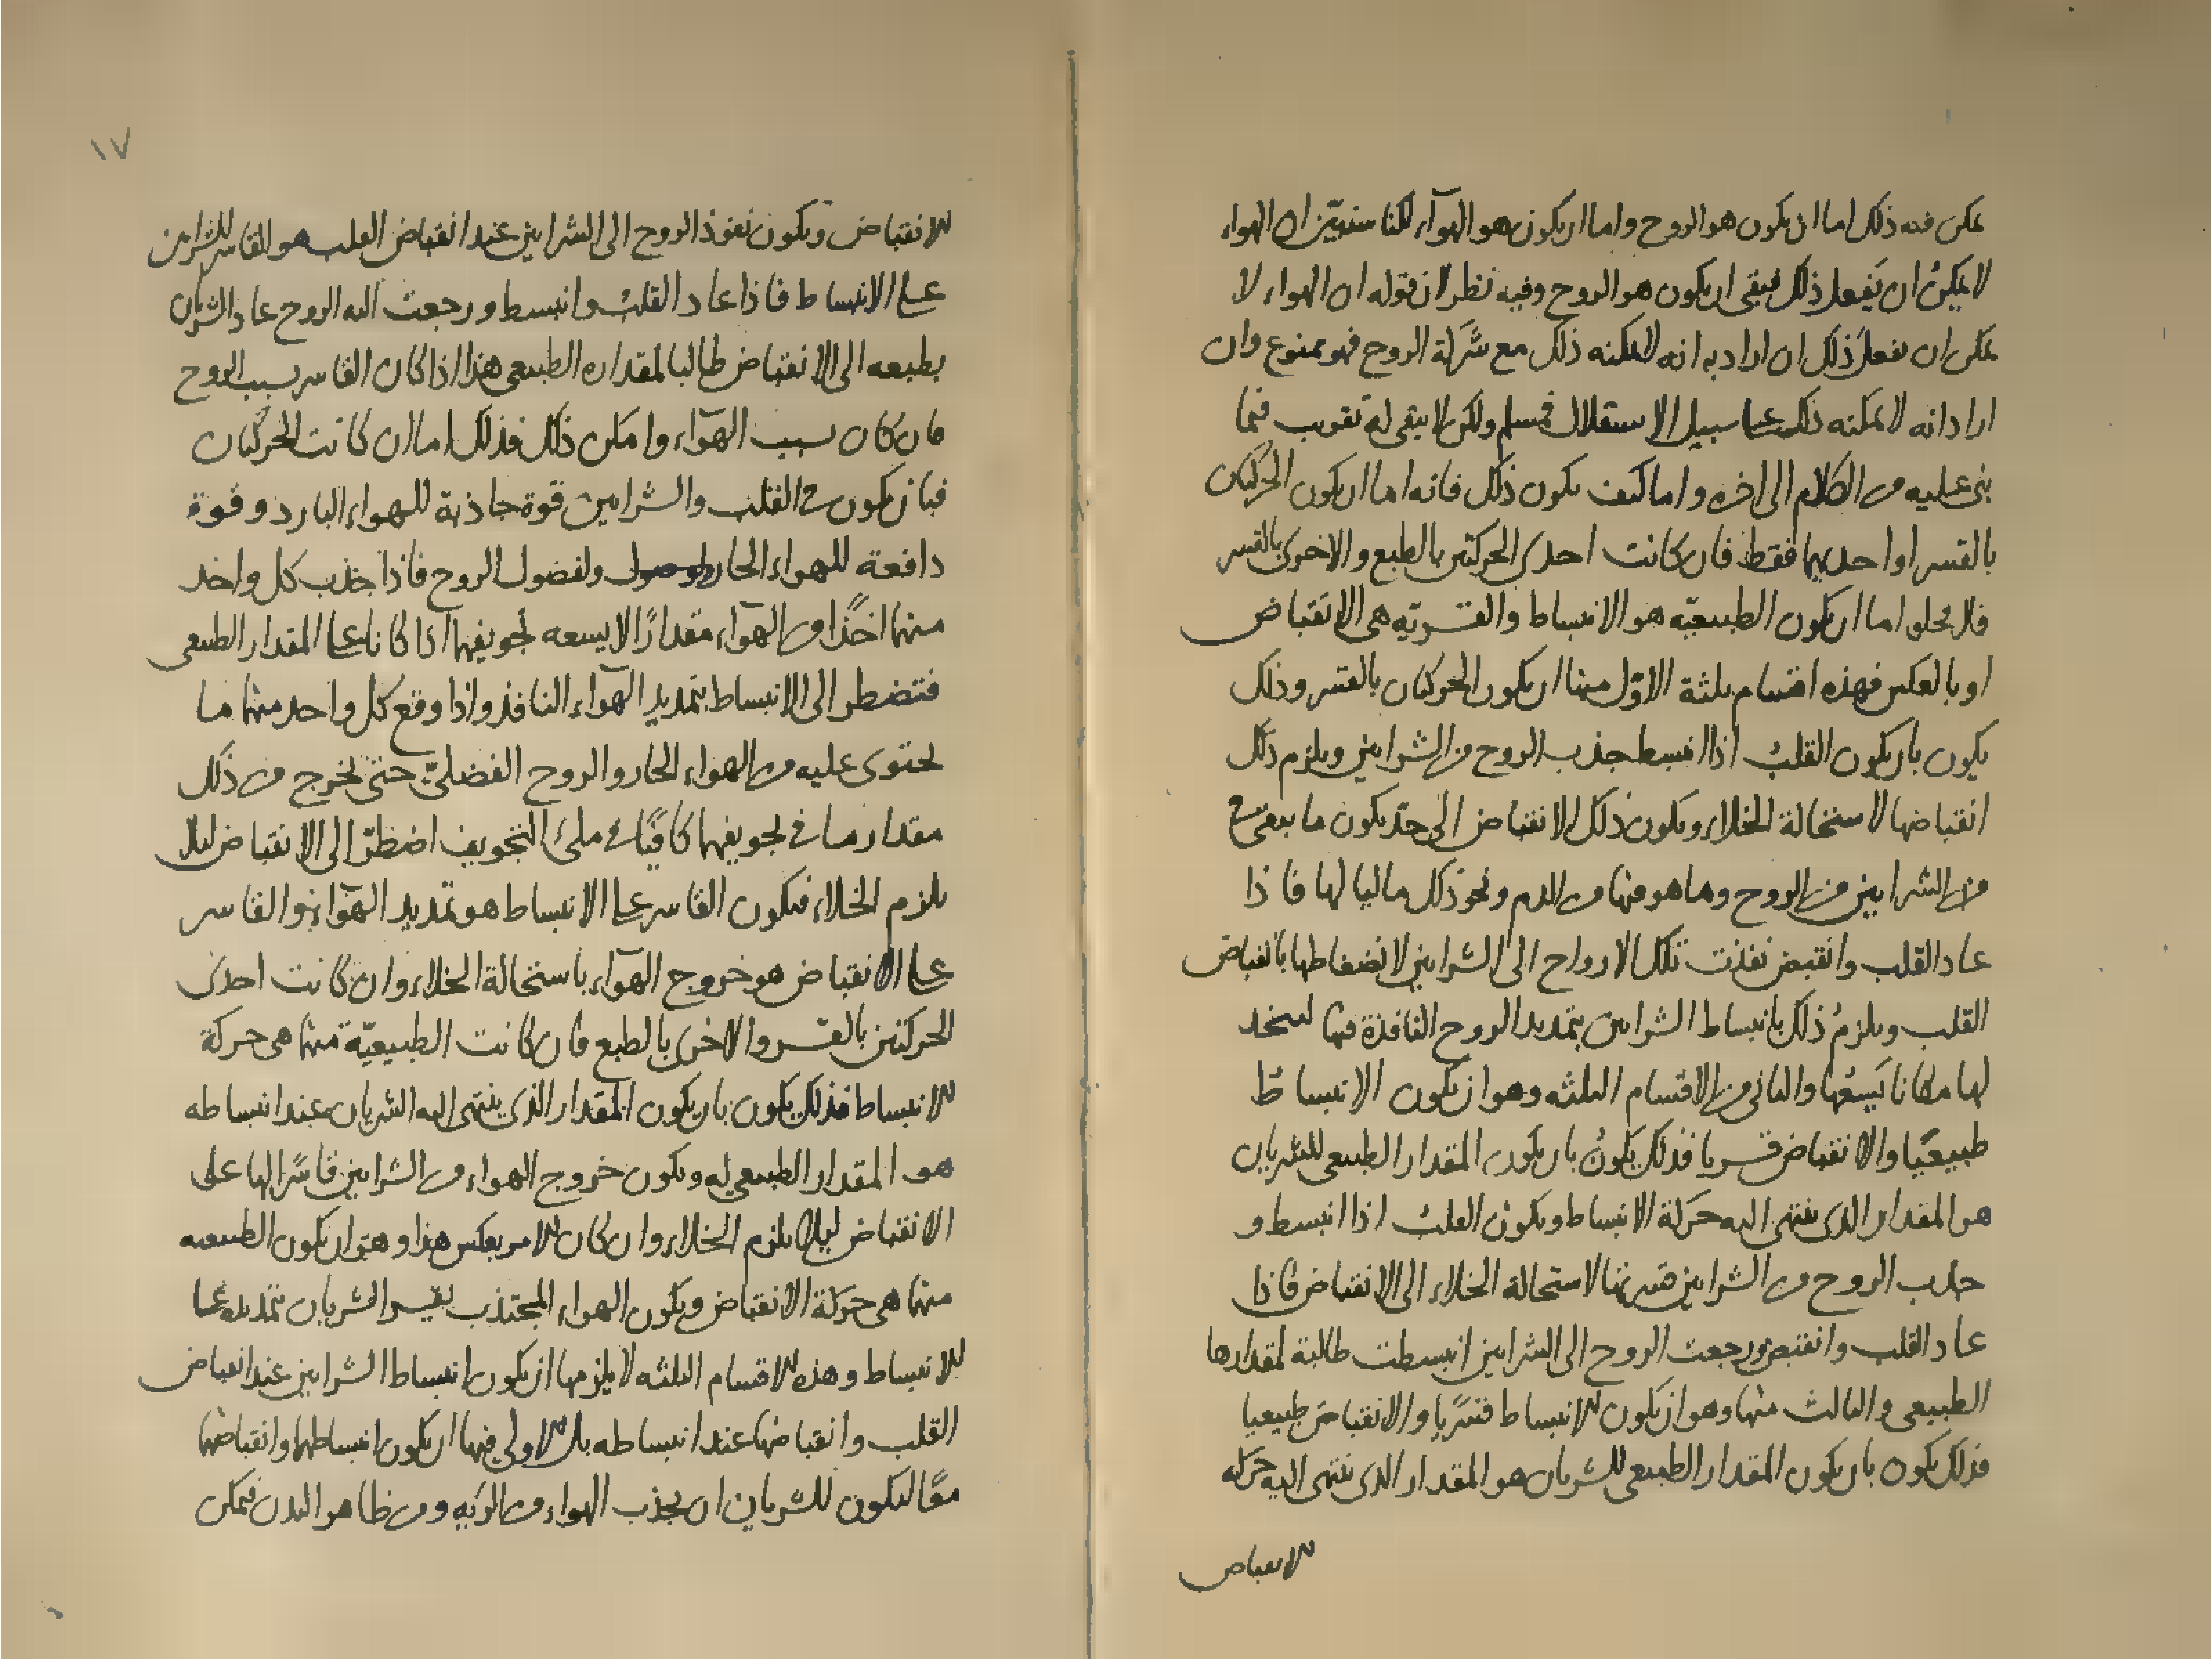 يمكن فيه ذلك اما ان يكون هو الروح واما ان يكون هو الهوآء لكنا سنبين ان الهواء
لا يمكن ان يفعل ذلك فبقى ان يكون هو الروح وفيه نظر لان قوله ان الهواء لا
يمكن ان يفعل ذلك ان اراد به انه لا يمكنه ذلك مع شركة الروح فهو ممنوع وان
اراد انه لا يمكنه ذلك على سبيل الاستقلال فمسلم ولكن لا يبقى له تقريب فيما
بنى عليه من الكلام الى اخره واما كيف يكون ذلك فانه اما ان يكون الحركتان
بالقسر او احديهما فقط فان كانت احدى الحركتين بالطبع والاخرى بالقسر
فلا يخلو اما ان يكون الطبيعيّه هو الانبساط والقسريّه هى الانقباض
او بالعكس فهذه اقسام ثلثة الاوّل منها ان يكون الحركتان بالقسر وذلك
يكون بان يكون القلب اذا انبسط جذب الروح من الشرايين ويلزم ذلك
انقباضها لاستحالة الخلاء ويكون ذلك الانقباض الى حد يكون ما يبقى في
من الشرايين من الروح وما هو فيها من الدم ونحو ذلك ماليا لها فاذا
عاد القلب وانقبض نفذت تلك الارواح الى الشرايين لانضغاطها بانقباض
القلب ويلزم ذلك بانبساط الشرايين بتمديد الروح النافذة فيها لتتخذ
لها مكانا يسعها والثانى من الاقسام الثلثه وهو ان يكون الانبساط
طبيعيّا والانقباض قسريا فذلك يكون بان يكون المقدار الطبيعى للشريان
هو المقدار الذى ينتهى اليه حركة الانبساط ويكون القلب اذا انبسط و
جذب الروح من الشرايين قسرتها لاستحالة الخلاء الى الانقباض فاذا
عاد القلب وانقبض ورجعت الروح الى الشرايين انبسطت طالبة لمقدارها
الطبيعى والثالث منها وهو ان يكون الانبساط قسريا والانقباض طبيعيا
فذلك يكون بان يكون المقدار الطبيعى للشريان هو المقدار الذى ينتهى اليه حركه
الانقباض
١٧
الانقباض ويكون نفوذ الروح الى الشرايين عند انقباض القلب هو القاسر للشرايين
على الانبساط فاذا عاد القلب وانبسط ورجعت اليه الروح عاد الشريان
بطبعه الى الانقباض طالبا لمقداره الطبيعى هذا اذا كان القاسر بسبب الروح
فان كان بسبب الهوآء وامكن ذلك فذلك اما ان كانت الحركتان
فبان يكون فى القلب والشرايين قوة جاذبة للهواء البارد وقوة
دافعة للهواء الحار ولفضول الروح فاذا جذب كل واحد
منهما اخذا من الهوآء مقدارًا لا يسعه تجويفهما اذا كانا على المقدار الطبيعى
فتضطر الى الانبساط بتمديد الهوآء النافذ واذا وقع كل واحد منهما ما
يحتوى عليه من الهواء الحار والروح الفضلىّ حتى يخرج من ذلك
مقدار ما فى تجويفهما كافيًا فى ملئ التجويف اضطرّ الى الانقباض ليلا
يلزم الخلاء فيكون القاسر على الانبساط هو تمديد الهوآء والقاسر
على الانقباض هو خروج الهوآء باستحالة الخلاء وان كانت احدى
الحركتين بالقسر والاخرى بالطبع فان كانت الطبيعيّة منهما هى حركة
الانبساط فذلك يكون بان يكون المقدار الذى ينتهى اليه الشريان عند انبساطه
هو المقدار الطبيعى له ويكون خروج الهواء من الشرايين قاسرًا لها على
الانقباض ليلا يلزم الخلاء وان كان الامر بعكس هذا وهو ان يكون الطبيعيه
منهما هى حركة الانقباض ويكون الهواء المجتذب يقسر الشريان بتمديده على
الانبساط وهذه الاقسام الثلثه لا يلزمها ان يكون انبساط الشرايين عند انقباض
القلب وانقباضها عند انبساطه بل الاولى فيها ان يكون انبساطهما وانقباضهما
معًا ليكون للشريان ان يجذب الهواء من الريه ومن ظاهر البدن فيمكن